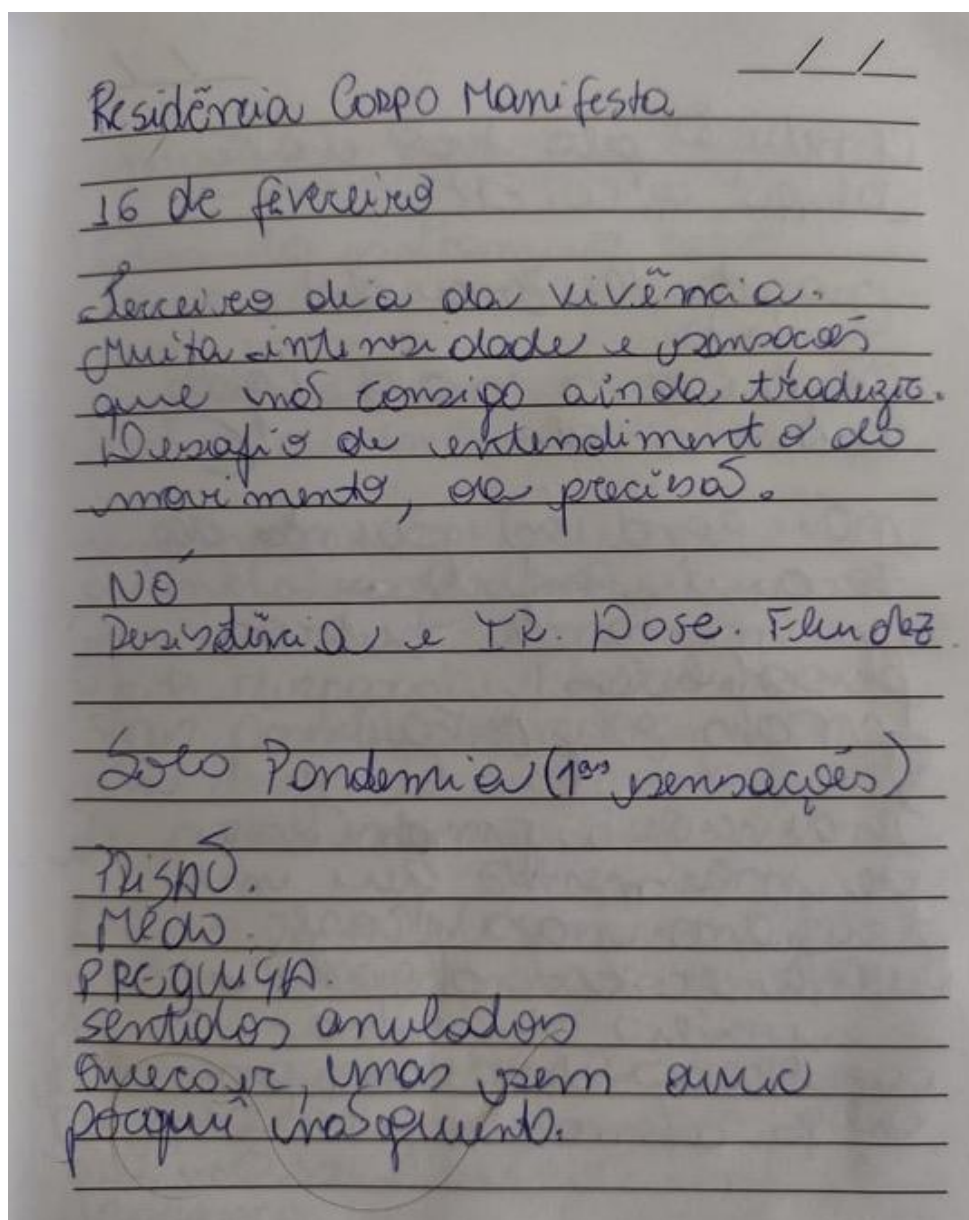 Residência Corpo Manifesta
16 de fevereiro
Terceiro dia da vivência.
Muita intensidade e sensações
que não consigo ainda traduzir.
Desafio de entendimento do
movimento, da precisão.
NÓ
Desistência e IR. Dose. Fluidez
Solo Pandemia (1as sensações)
PRISÃO.
Medo.
PREGUIÇA.
sentidos anulados
Quero ir, mas sem
porquê não aguento.